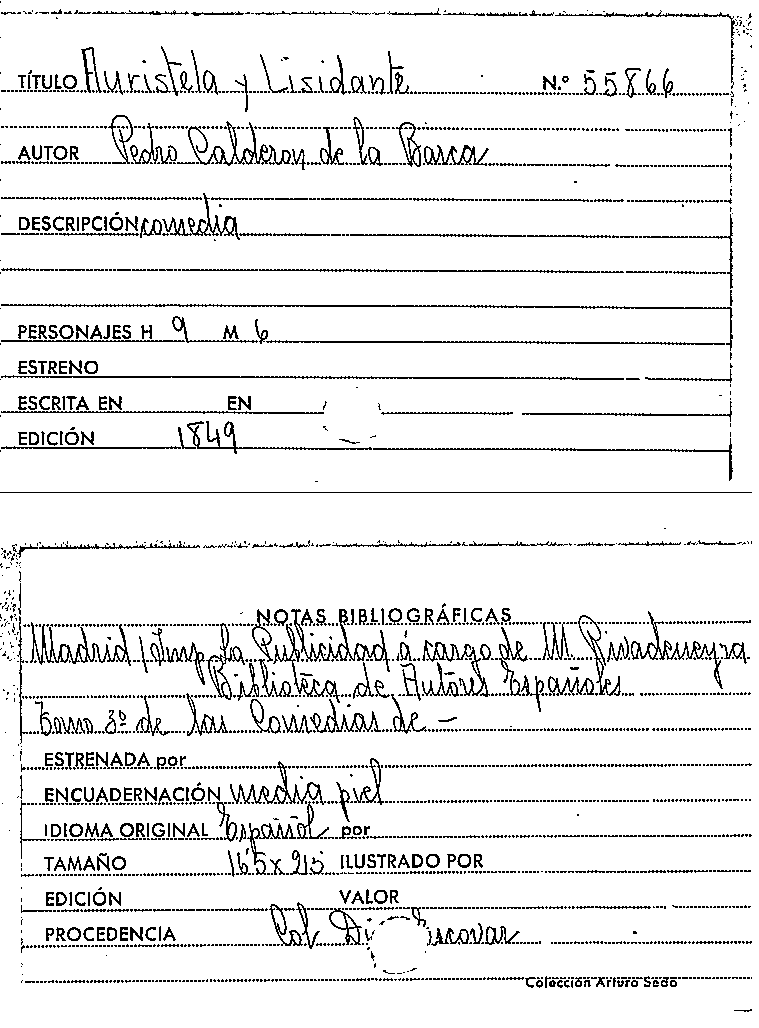 TÍTULO Auristela y Lisidante N.º 55866
AUTOR Pedro Calderon de la Barca
DESCRIPCIÓN comedia
PERSONAJES H 9 M 6
ESTRENO
ESCRITA EN EN
EDICIÓN 1849
NOTAS BIBLIOGRÁFICAS
Madrid / Imp. La Publicidad á cargo de M. Rivadeneyra
Biblioteca de Autores Españoles
Tomo 3º de las Comedias de —
ESTRENADA por
ENCUADERNACIÓN media piel
IDIOMA ORIGINAL Español por
TAMAÑO ILUSTRADO POR
EDICIÓN VALOR
PROCEDENCIA Col. Escovar
Colección Arturo Sedó